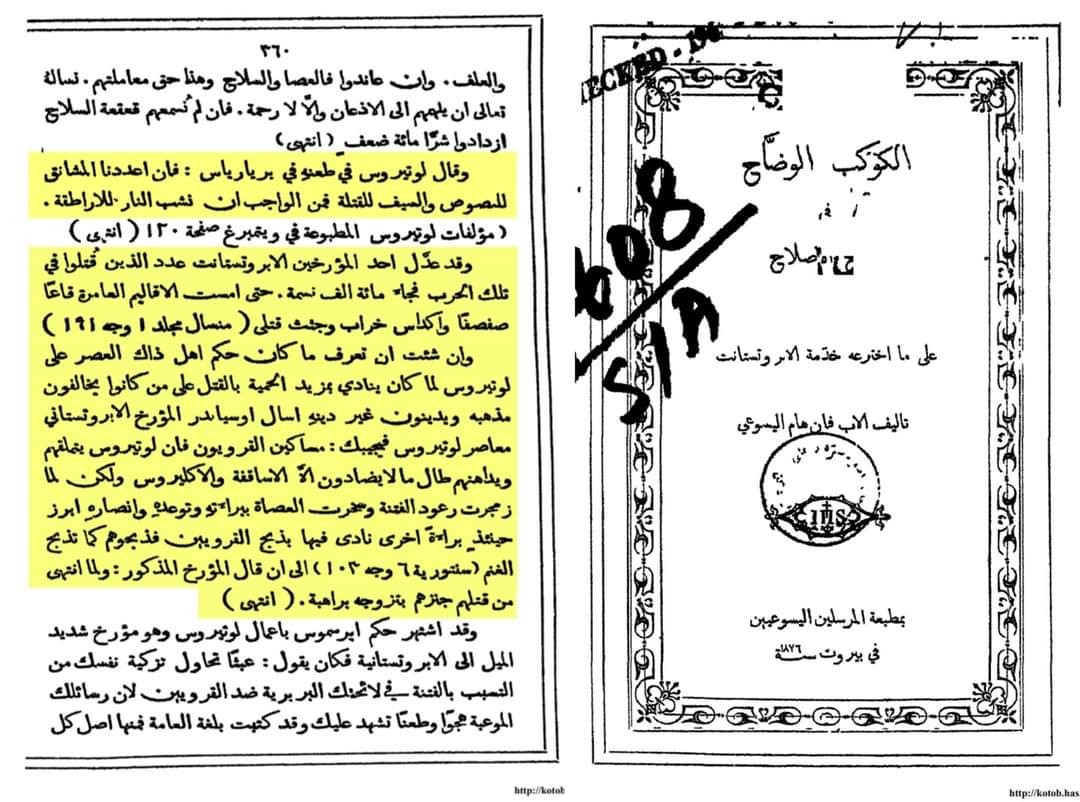 ٣٦٠
والعلف. وان عاندوا فالعصا والسلاح وهذا حق معاملتهم. نسالة
تعالى ان يلهمهم الى الاذعان والَّا لا رحمة. فان لم تُسمعهم قعقعة السلاح
ازدادوا شرًا مائة ضعف (انتهى)
وقال لوتيروس في طعنه في بريارياس: فان اعددنا المشانق
للصوص والسيف للقتلة فمن الواجب ان نشب النار للاراطقة.
(مؤلفات لوتيروس المطبوعة في ويتمبرغ صفحة ١٢٠ (انتهى)
وقد عدَّل احد المؤرخين الابروتستانت عدد الذين قُتلوا في
تلك الحرب فجاء مائة الف نسمة. حتى امست الاقاليم العامرة قاعًا
صفصفًا واكداس خراب وجثث قتلى (منسال مجلد ١ وجه ١٩١)
وان شئت ان تعرف ما كان حكم اهل ذاك العصر على
لوتيروس لما كان ينادي بمزيد الحمية بالقتل على من كانوا يخالفون
مذهبه ويدينون غير دينه اسال اوسياندر المؤرخ الابروتستاني
معاصر لوتيروس فيجيبك: مساكين القرويون فان لوتيروس يتملقهم
ويداهنهم طال ما لا يضادون الَّا الاساقفة والاكليروس ولكن لما
زمجرت رعود الفتنة وسخرت العصاة ببراءته وتوعده وانصاره ابرز
حينئذٍ براءة اخرى نادى فيها بذبح القرويين فذبحوهم كما تذبح
الغنم (سنتورية ٦ وجه ١٠٣) الى ان قال المؤرخ المذكور: ولما انتهى
من قتلهم جنزهم بتزوجه براهبة. (انتهى)
وقد اشتهر حكم ايرسموس باعمال لوتيروس وهو مؤرخ شديد
الميل الى الابروتستانية فكان يقول: عبثًا تحاول تزكية نفسك من
التسبب بالفتنة في لائحتك البربرية ضد القرويين لان رسائلك
الموعبة هجوًا وطعنًا تشهد عليك وقد كتبت بلغة العامة فمنها اصل كل
http://kotob
608
51A
الكوكب الوضَّاح
في
على ما اخترعه خدمة الابروتستانت
تاليف الاب فان هام اليسوعي
IHS
بمطبعة المرسلين اليسوعيين
في بيروت سنة ١٨٧٦
http://kotob.has